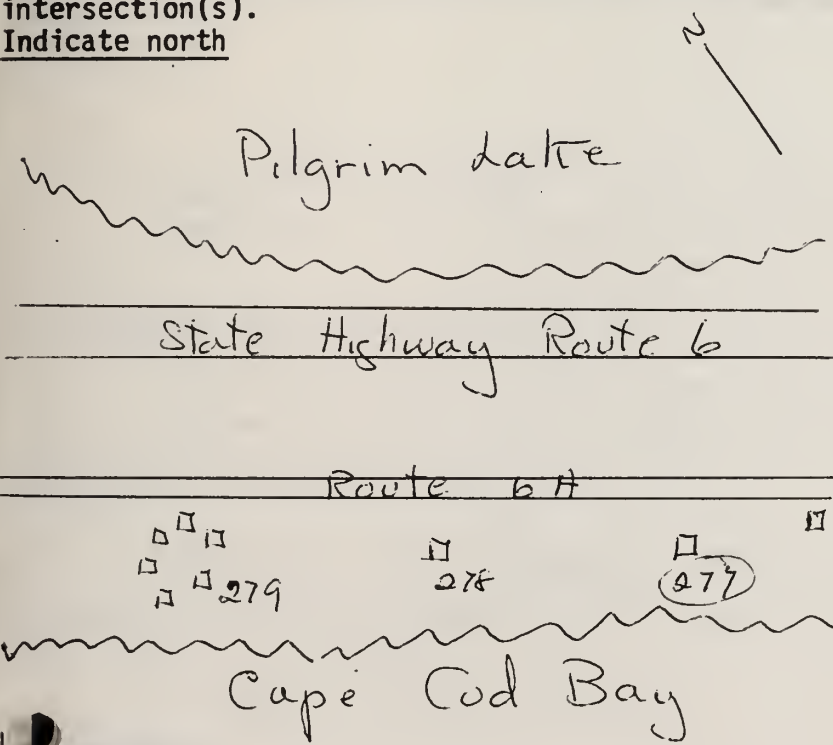 intersection(s).
Indicate north
N
Pilgrim Lake
State Highway Route 6
Route 6 A
279
278
277
Cape Cod Bay